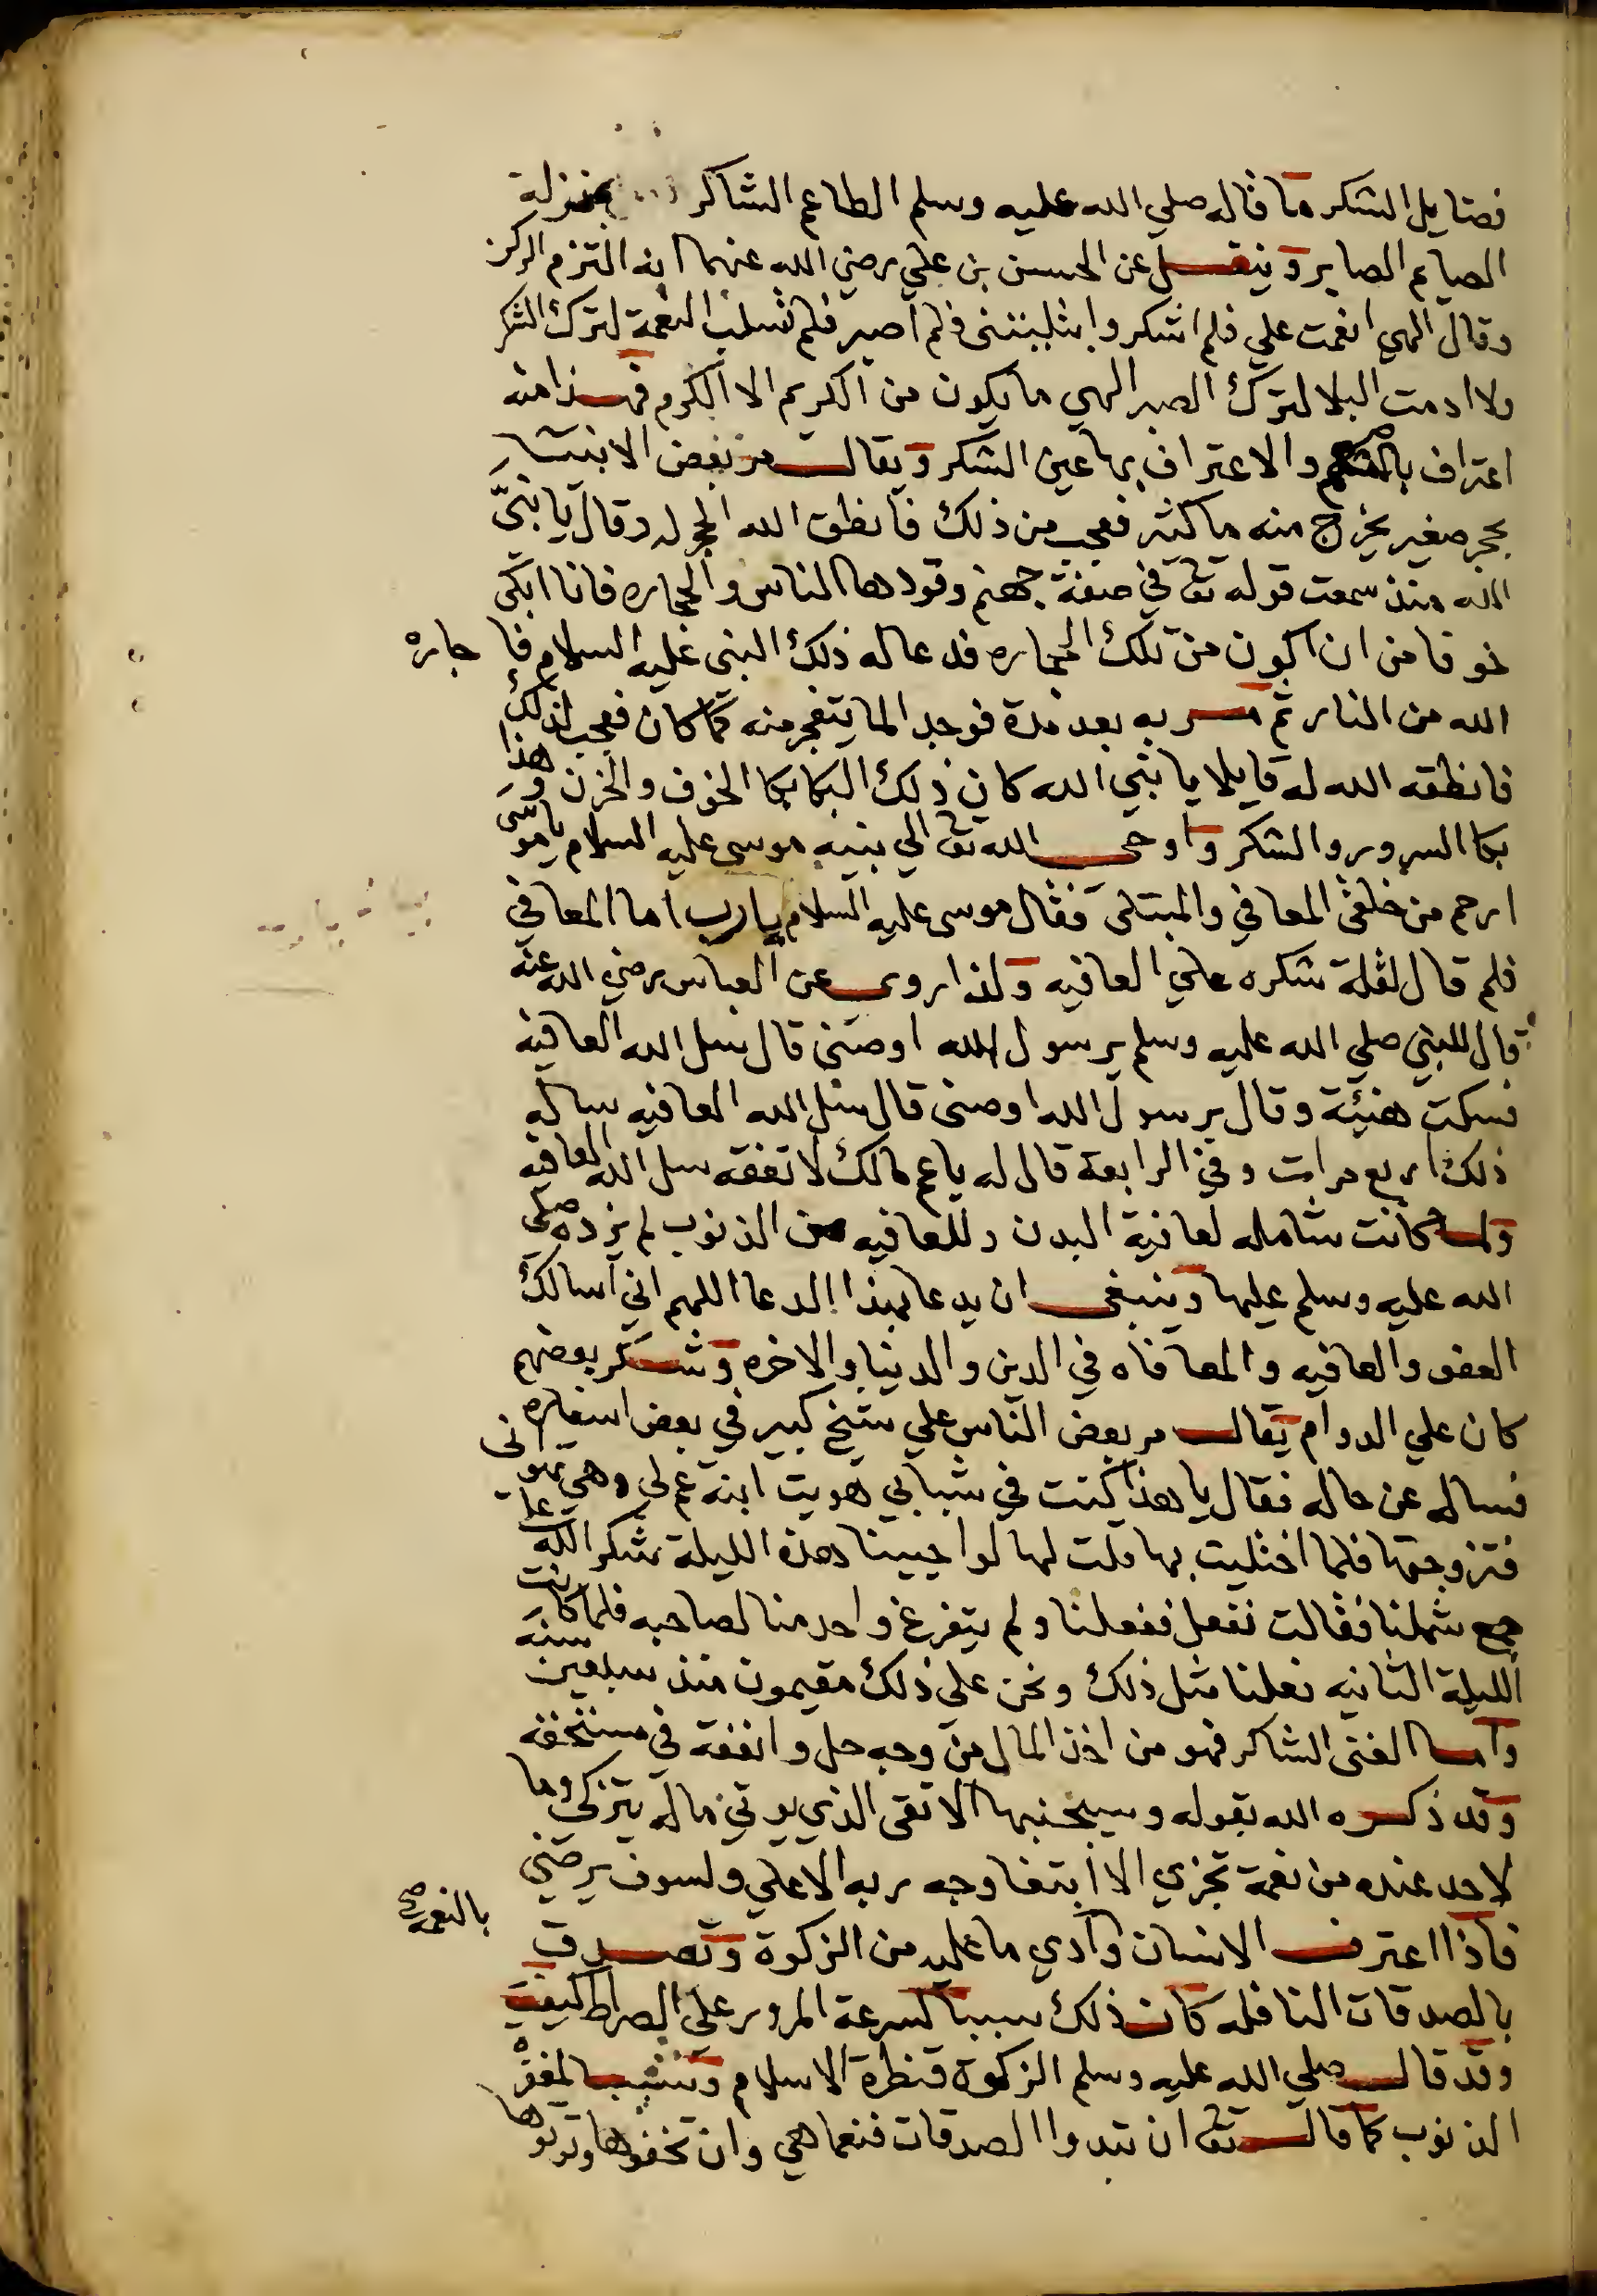 فضايل الشكر ما قاله صلي الله عليه وسلم الطاعم الشاكر بمنزلة
الصايم الصابر وينقل عن الحسن بن علي رضي الله عنهما انه التزم الركن
وقال الهي انعمت علي فلم اشكر وابتليتني فلم اصبر فلم تسلب النعمة لترك الشكر
ولا ادمت البلا لترك الصبر الهي ما يكون من الكريم الا الكرم فهذا منه
اعتراف بالنعم والاعتراف بها عين الشكر ويقال مر بعض الانبيا
بحجر صغير يخرج منه ما كثير فعجب من ذلك فانطق الله الحجر له وقال يا نبي
الله منذ سمعت قوله تعا في صفة جهنم وقودها الناس والحجاره فانا ابكي
خوفا من ان اكون من تلك الحجاره فدعا له ذلك النبي عليه السلام فا جاره
الله من النار ثم مر به بعد مدة فوجد الما يتفجر منه كما كان فعجب لذلك
فانطقه الله له قايلا يا نبي الله كان ذلك البكا بكا الخوف والحزن وهذا
بكا السرور والشكر واوحي الله تعا الي نبيه موسى عليه السلام يا موسى
ارحم من خلقي المعافي والمبتلى فقال موسى عليه السلام يا رب اما المعافي
فلم قال لقلة شكره علي العافيه ولذا روي عن العباس رضي الله عنه
قال للنبي صلي الله عليه وسلم يرسول الله اوصني قال سل الله العافية
فسكت هنيئة وقال يرسول الله اوصني قال سل الله العافيه ساله
ذلك اربع مرات وفي الرابعة قال له يا عم مالك لا تفقه سل الله العافيه
ولما كانت شامله لعافية البدن وللعافيه من الذنوب لم يزده صلي
الله عليه وسلم عليها وينبغي ان يدعا بهذا الدعا اللهم اني اسالك
العفو والعافيه والمعافاه في الدين والدنيا والاخره وشكر بعضهم
كان علي الدوام يقال مر بعض الناس علي شيخ كبير في بعض اسفاره
فساله عن حاله فقال يا هذا كنت في شبابي هويت ابنة عم لي وهي تهواني
فتزوجتها فلما اختليت بها قلت لها لو احيينا هذه الليلة شكرا لله علي
جمع شملنا فقالت نفعل ففعلنا ولم يتفرغ واحد منا لصاحبه فلما كانت
الليلة الثانيه فعلنا مثل ذلك ونحن علي ذلك مقيمون منذ سبعين سنه
واما الغني الشاكر فهو من اخذ المال من وجه حل وانفقه في مستحقه
وقد ذكره الله بقوله وسيجنبها الاتقى الذي يوتي ماله يتزكى وما
لاحد عنده من نعمة تجزي الا ابتغا وجه ربه الاعلي ولسوف يرضي
فاذا اعترف الانسان بالنعمه صح وادي ما عليه من الزكوة وتصدق
بالصدقات النافله كان ذلك سببا لسرعة المرور علي الصراط كيف
وقد قال صلي الله عليه وسلم الزكوة قنطرة الاسلام وتسبب لمغفرة
الذنوب كما قال تعا ان تبدوا الصدقات فنعما هي وان تخفوها وتوتوها